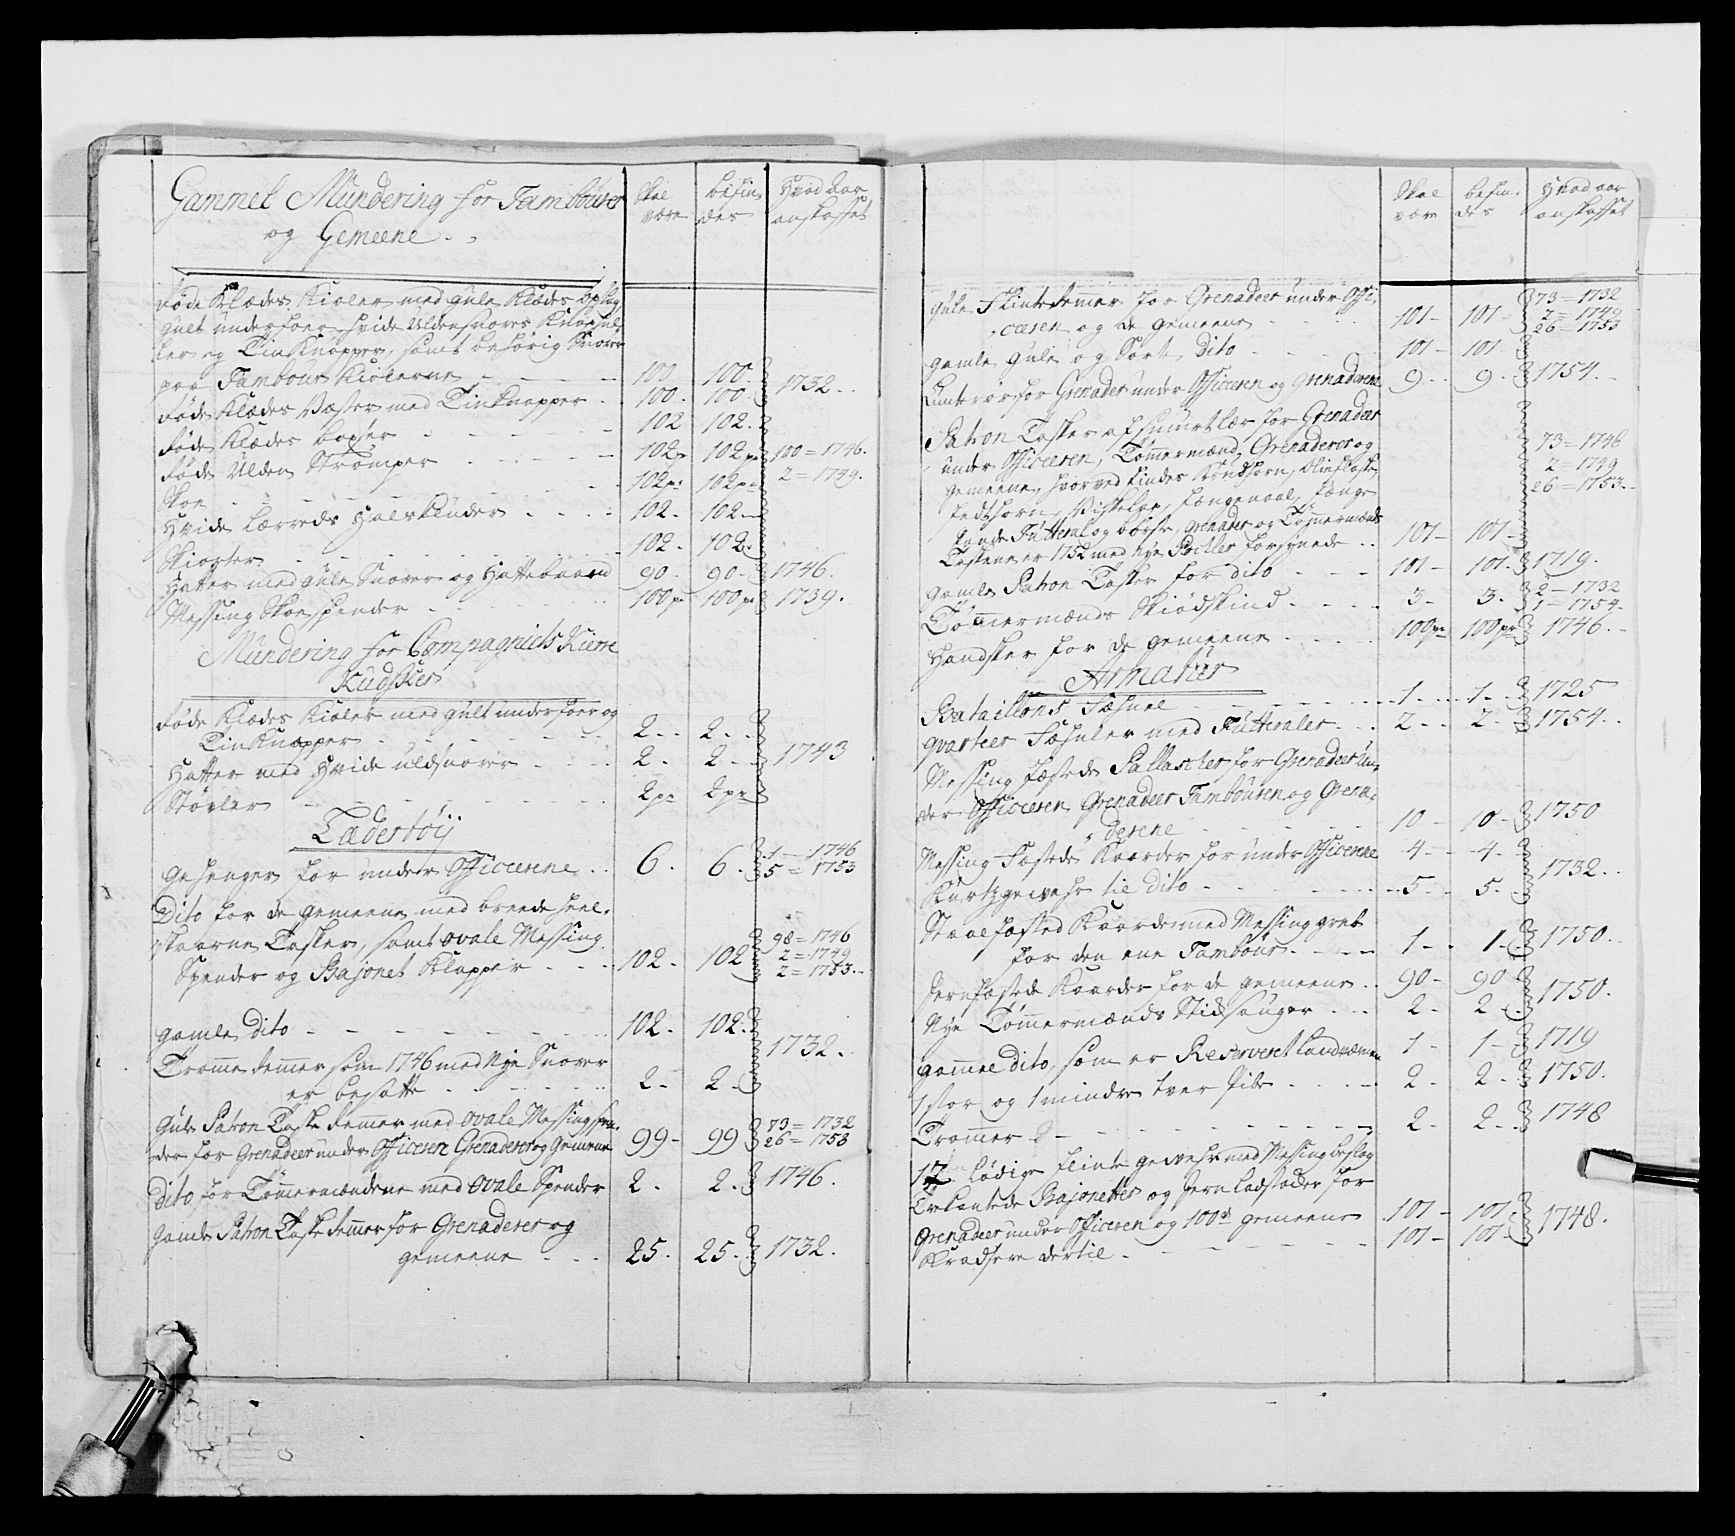 Gammel Mundering for Tambourer
og Gemeene.
Skal være
befin des
Hvad Aar anskaffet
Røde Klædes Kioler med gule Klædes opslag
gult underfoer, hvide Uldensnores Knaphul
ler og Tin Knapper, samt behørig Snorer
paa Tambour Kiolerne 100 100
Røde Klædes Væster med Tinknapper 100. 100. 1732.
Røde Klædes boxser 102 102.
Røde Ulden Strømper 102pr 102pr 100 = 1746.
Skoe 102pr 102pr 2 = 1749.
Hvide Lærreds Halsklüder 102. 102
Skiorter 102. 102.
Hatter med gule Snorer og Hattebaand 90. 90. 1746.
Messing Skoe spender 100pr 100pr 1739.
Mundering for Compagniets Kiøre
Kudsker
Røde Klædes Kioler med gult underfoer og
Tin Knapper 2. 2.
Hatter med Hvide uldsnorer 2. 2. 1743
Støvler 2pr 2pr
Lædertøij
Gehenger for under Officererne 6. 6. 1 = 1746
5 = 1753
Dito for de gemeene med breede heel
skaarne Tasker, samt ovale Messing
Spender og Bajonet Klapper 102. 102 98 = 1746
2 = 1749
2 = 1753.
gamle dito 102. 102.
Tromme remmer som 1746 med Nye Snorer
er besatte 2. 2. 1732.
Gule Patron Taske remer med ovale Messing spen
der for Grenadeer under Officeren Grenaderer og Gemeene 99 99 73 = 1732
26 = 1753
dito for Tømmermændene med ovale Spender 2. 2. 1746.
gamle Patron Taske remer for Grenaderer og
gemeene 25. 25. 1732.
Skal være
befin des
Hvad aar anskaffet
Gule Flinteremer for Grenadeer under Offi
ceeren og de gemeene 101 101 73 = 1732
2 = 1749
26 = 1753
gamle gule og Sorte dito 101 101
Lunterør for Grenadeer under Officeren og Grenadererne 9 9 1754.
Patron Tasker af Smurt lær for Grenadeer
under Officeren, Tømmermænd, Grenaderer og
gemeene, hvorved findes Krudhorn, Oliefladske
fedthorn, Viskelap, fængenaal, fænge
hands Futteral og børste, grenader og Tømmermænds
Taskene er 1752 med nye Pochler forsynede 101 101 73 = 1746
2 = 1749
26 = 1753.
gamle Patron Tasker for dito 101 101. 1719.
Tømmermænds Skiødskind 3 3. 2 = 1732
1 = 1754
Handsker for de gemeene 100pr 100pr 1746.
Armatur
Bataillons Fahne 1 1 1725
qvarteer Fahner med Futteraler 2 2 1754.
Messing fæstede Pallascher for Grenadeer un
der Officeren Grenadeer Tambouren og Grena
derene 10 10 1750
Messing Fæstede Kaarder for under Officerene 4 4
Kurtzgevehr til dito 5 5. 1732.
Staalfæsted Kaarde med Messing greb
for den ene Tambour 1 1. 1750.
Jernfæstede Kaarder for de gemeene 90 90
Nye Tømmermænds Stiksauger 2. 2 1750.
gammel dito, som er Reserveret landværnen 1 1 1719
1 stor og 1 mindre tver Pibe 2 2. 1750.
Trommer 2 2 2. 1748
17 lødige flinte gevehr med Messing beslag
Trekantede Bajonetter og Jern ladstoder for
Grenadeer under Officeren og 100de gemeene 101 101. 1748.
Kradsere dertil 101 101